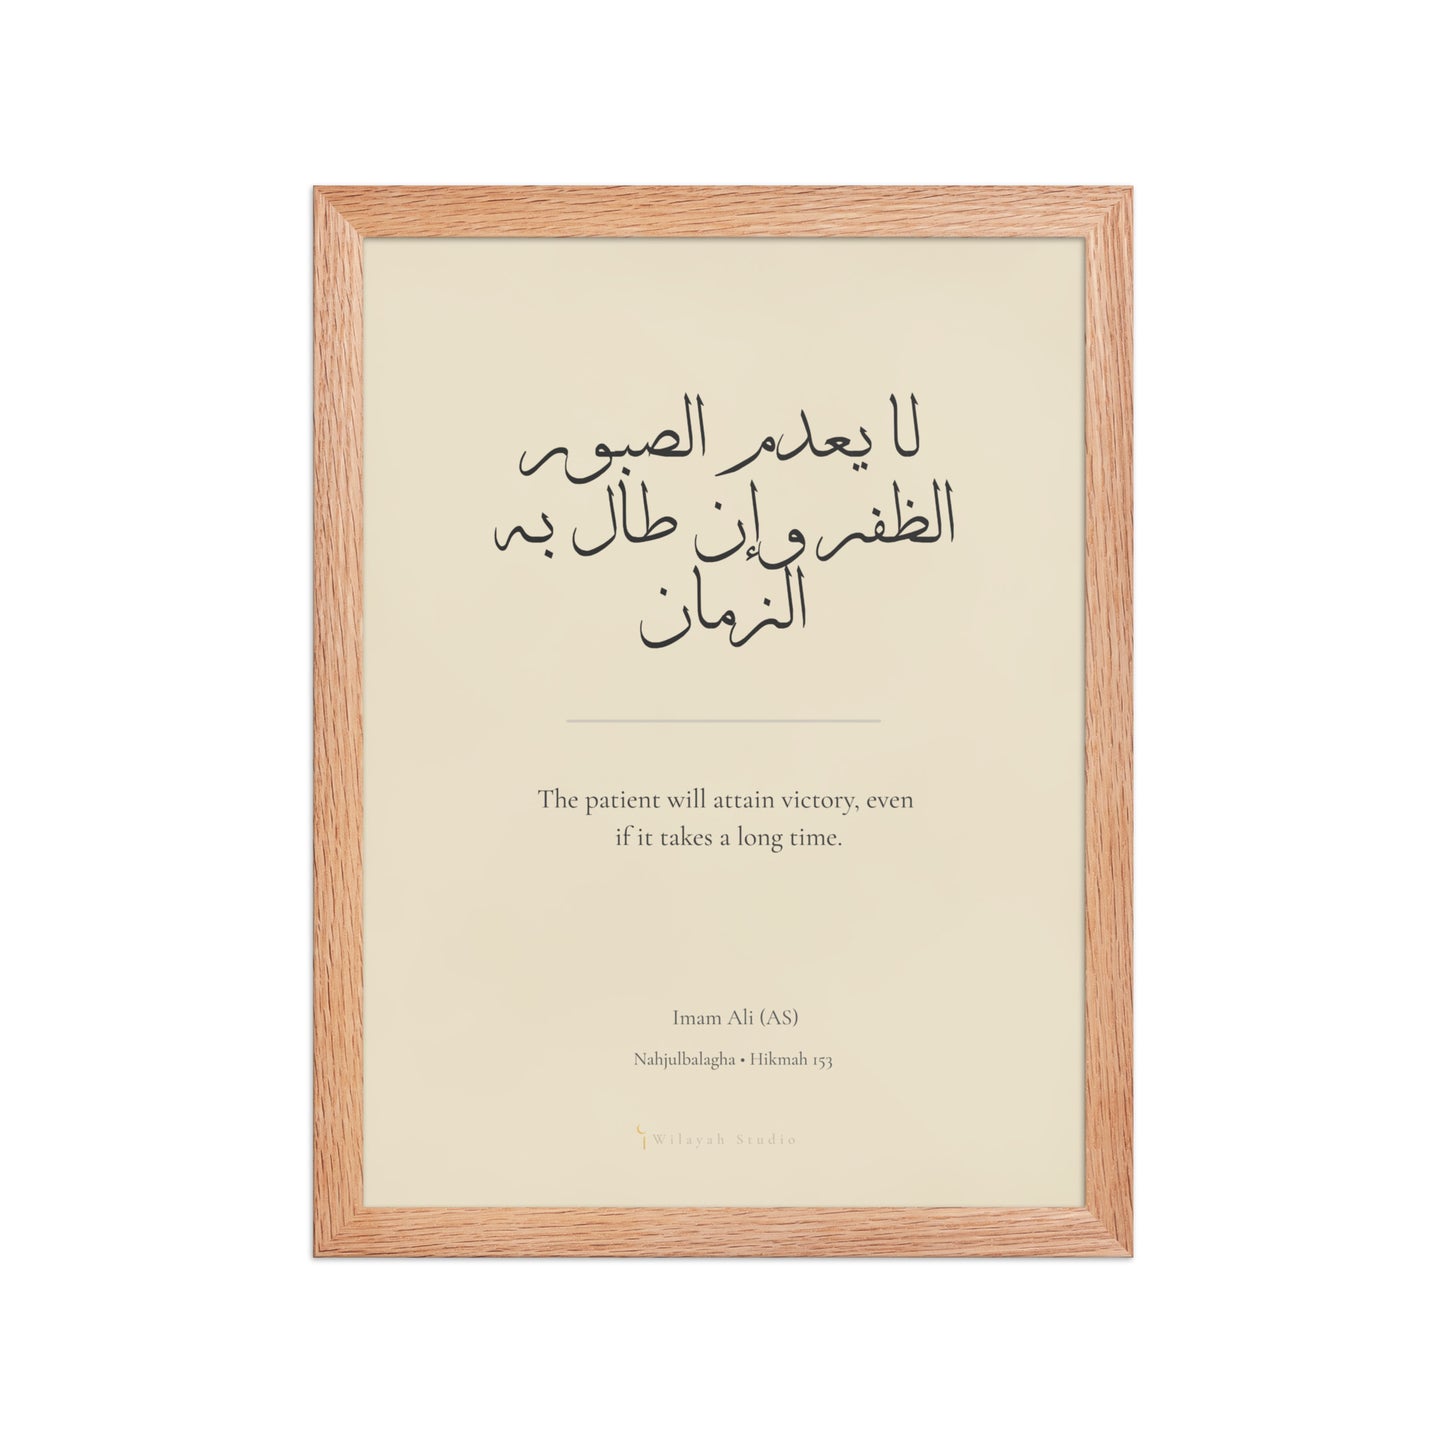 لا يعدم الصبور
الظفر وإن طال به
الزمان
The patient will attain victory, even
if it takes a long time.
Imam Ali (AS)
Nahjulbalagha • Hikmah 153
Wilayah Studio